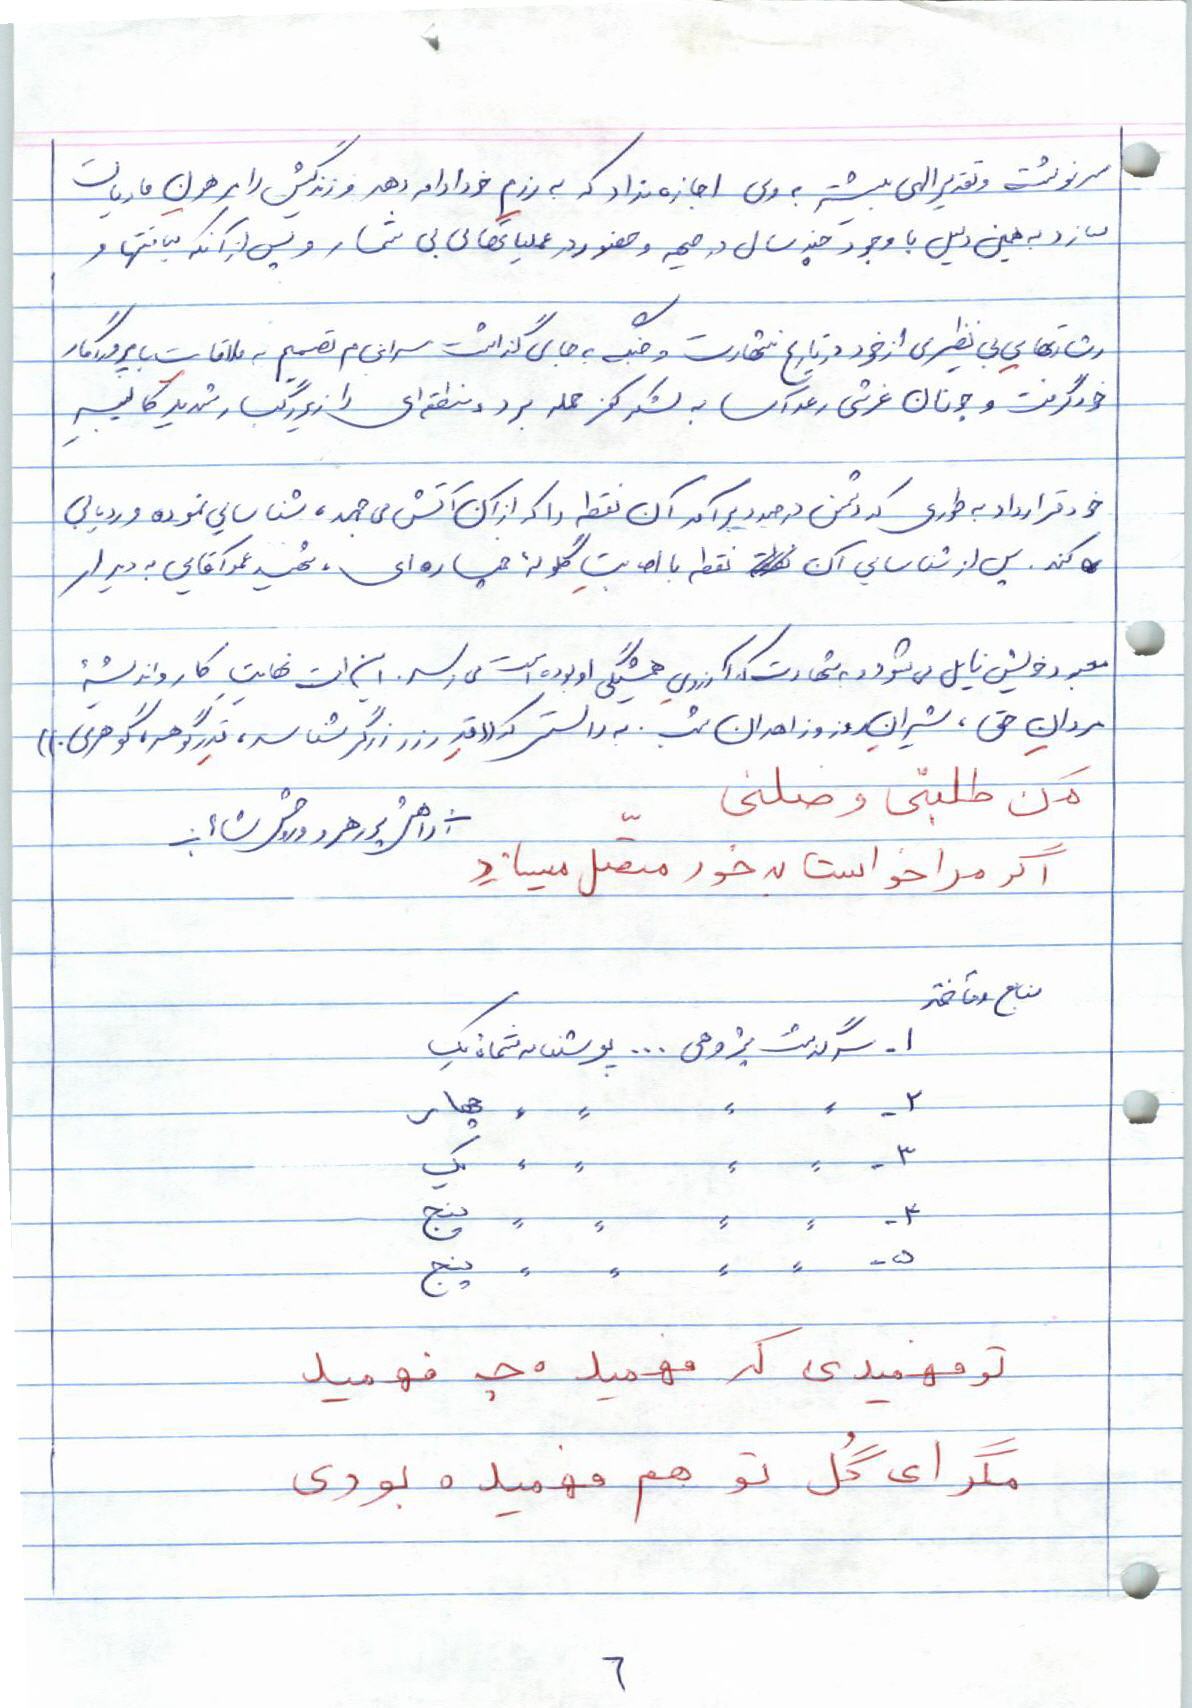 سرنوشت و تقدیر الهی بیشتر به وی اجازه نداد که به رزم خود ادامه دهد و زندگیش را مرهون مادیات
سازد به همین دلیل با وجود چند سال در جبهه و حضور در عملیاتهای بی شمار و پس از آنکه
رشادتهای بی نظیری از خود در تاریخ شهادت و جنگ به جای گذاشت سرانجام تصمیم به ملاقات با پروردگار
خود گرفت و چونان غرشی رعدآسا به لشکر کفر حمله برد و منطقه‌ای را زیر رگبار شدید کالیبر
خود قرار داد به طوری که دشمن درصدد برآمد آن نقطه را که از آن آتش می جهد، شناسایی نموده و ردیابی
کند. پس از شناسایی آن نقطه با اصابت گلولهٔ خمپاره‌ای، شهید عمرآقایی به دیدار
معبود خویش نایل می شود و به شهادت که آرزوی همیشگی او بوده است می رسد. این است نهایت کار و اندیشهٔ
مردان حق، شیران روز و زاهدان شب. به راستی که ((قدر زر، زرگر شناسد، قدر گوهر، گوهری.))
مَن طلبنی وصلنی
ـ راهش پر رهرو و روحش شاد ـ
اگر مرا خواست به خود متصّل میسازد
منابع و مآخذ
۱- سرگذشت پژوهی ... پوشنامه شماره یک
۲- ٬ ٬ ٬ ٬ چهار
۳- ٬ ٬ ٬ ٬ یک
۴- ٬ ٬ ٬ ٬ پنج
۵- ٬ ٬ ٬ ٬ پنج
تو فهمیدی که فهمیده چه فهمید
مگر ای گُل تو هم فهمیده بودی
٦